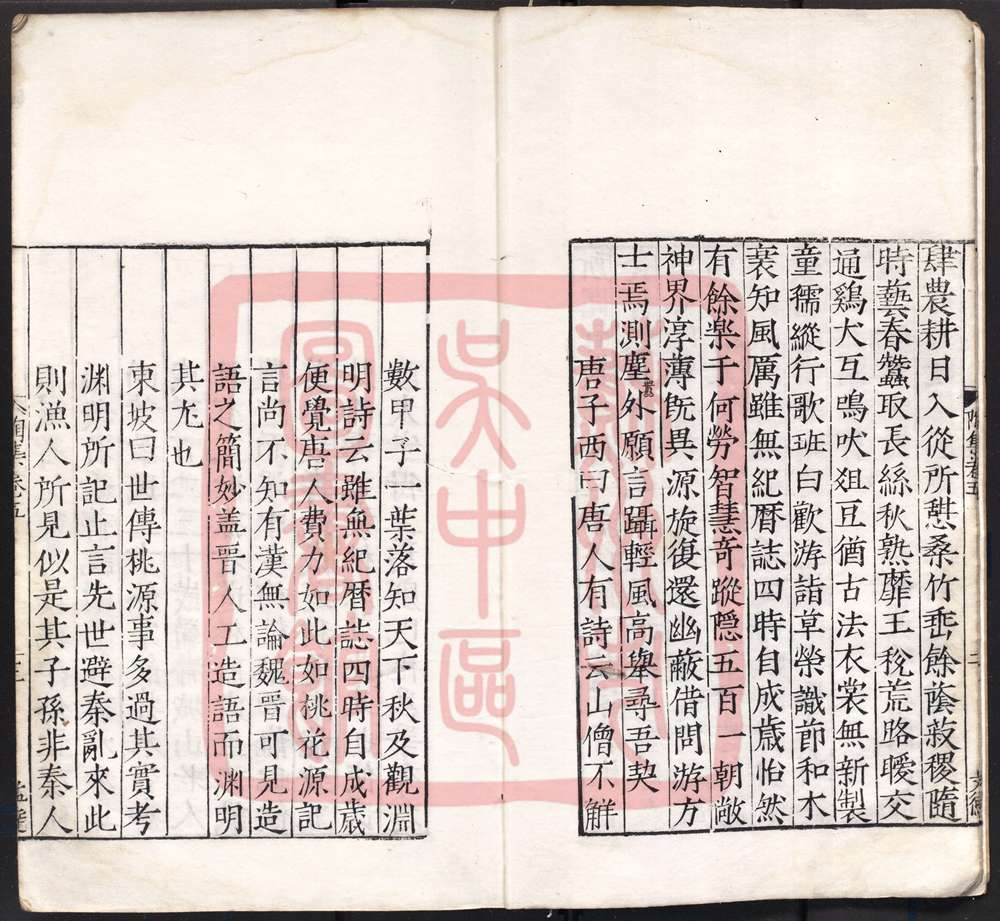 肆農耕日入從所憇桑竹垂餘蔭菽稷隨
時藝春蠶取長絲秋熟靡王稅荒路曖交
通鷄犬互鳴吠俎豆猶古法衣裳無新製
童孺縱行歌班白歡游詣草榮識節和木
衰知風厲雖無紀曆誌四時自成歲怡然
有餘樂于何勞智慧奇蹤隱五百一朝敞
神界淳薄旣異源旋復還幽蔽借問游方
士焉測塵外願言躡輕風高舉尋吾契
唐子西曰唐人有詩云山僧不觧
數甲子一葉落知天下秋及觀淵
明詩云雖無紀曆誌四時自成歲
便覺唐人費力如此如桃花源記
言尚不知有漢無論魏晉可見造
語之簡妙盖晉人工造語而渊明
其尤也
東坡曰世傳桃源事多過其實考
渊明所記止言先世避秦亂來此
則漁人所見似是其子孫非秦人
吳中區
圖書館